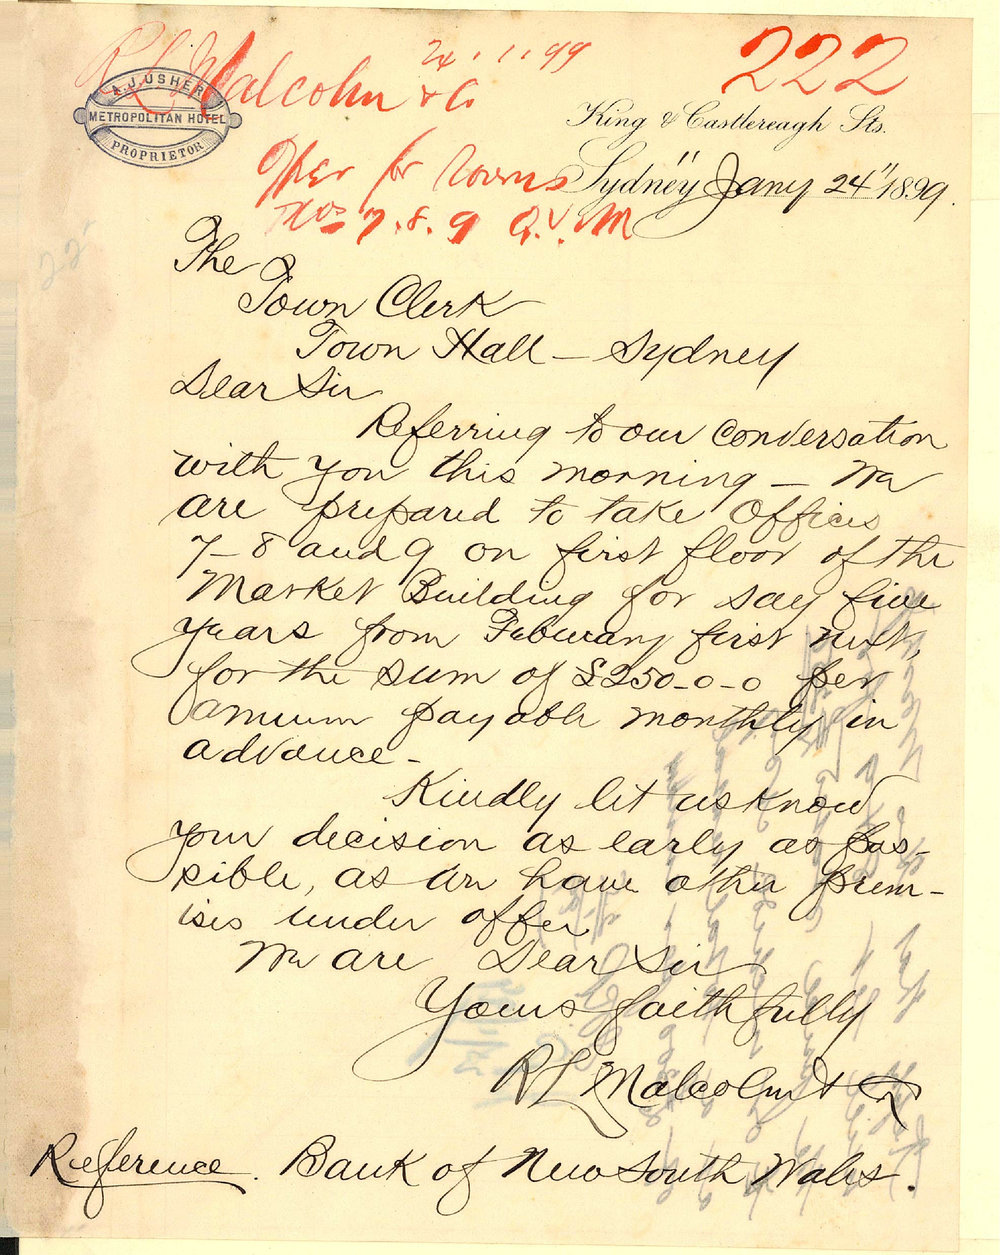 R L Malcolm & Co
24.1.99
222
A. J. USHER
METROPOLITAN HOTEL
PROPRIETOR
King & Castlereagh Sts.
Offer for rooms
Nos 7. 8. 9 Q.V.M
Sydney Jany 24" 1899.
The
Town Clerk
Town Hall — Sydney
Dear Sir
Referring to our conversation
with you this morning — We
are prepared to take Offices
7–8 and 9 on first floor of the
Market Building for say five
years from Feburary first next,
for the sum of £250-0-0 per
annum payable monthly in
advance -
Kindly let us know
your decision as early as pos-
sible, as we have other prem-
ises under offer
We are Dear Sir
Yours faithfully
R L Malcolm & Co
Reference. Bank of New South Wales.